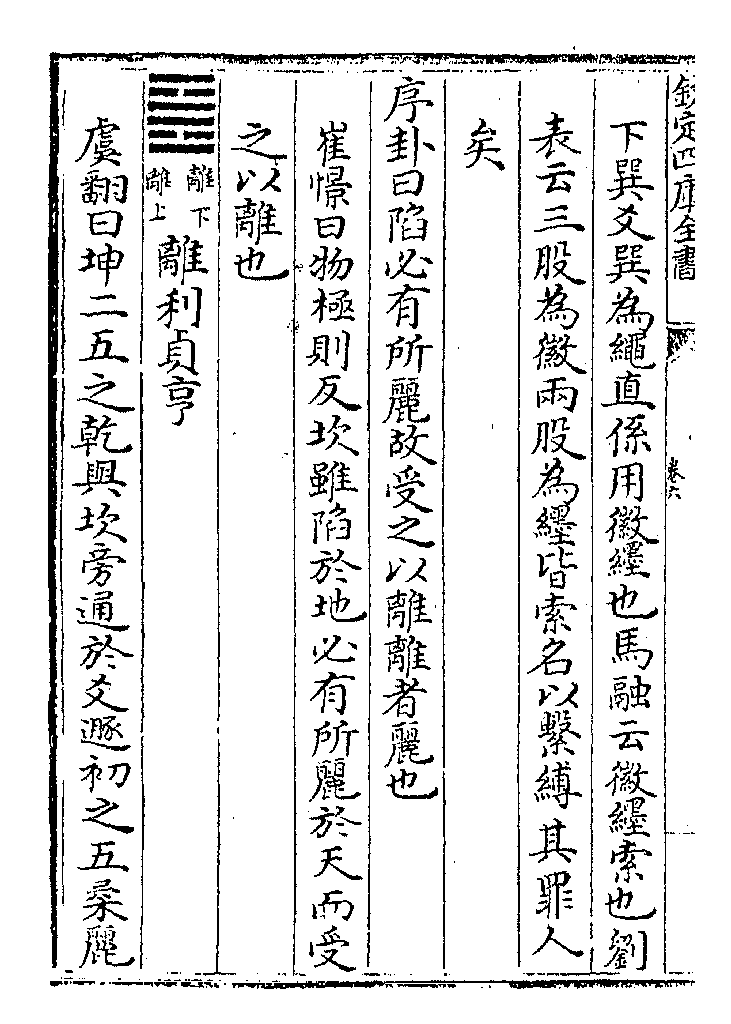 欽定四庫全書
卷六
下巽爻巽為繩直係用徽纆也馬融云徽纆索也劉
表云三股為徽兩股為纆皆索名以繫縛其罪人
矣
序卦曰陷必有所麗故受之以離離者麗也
崔憬曰物極則反坎雖陷於地必有所麗於天而受
之以離也
䷝離下離上離利貞亨
虞翻曰坤二五之乾與坎旁通於爻遯初之五柔麗